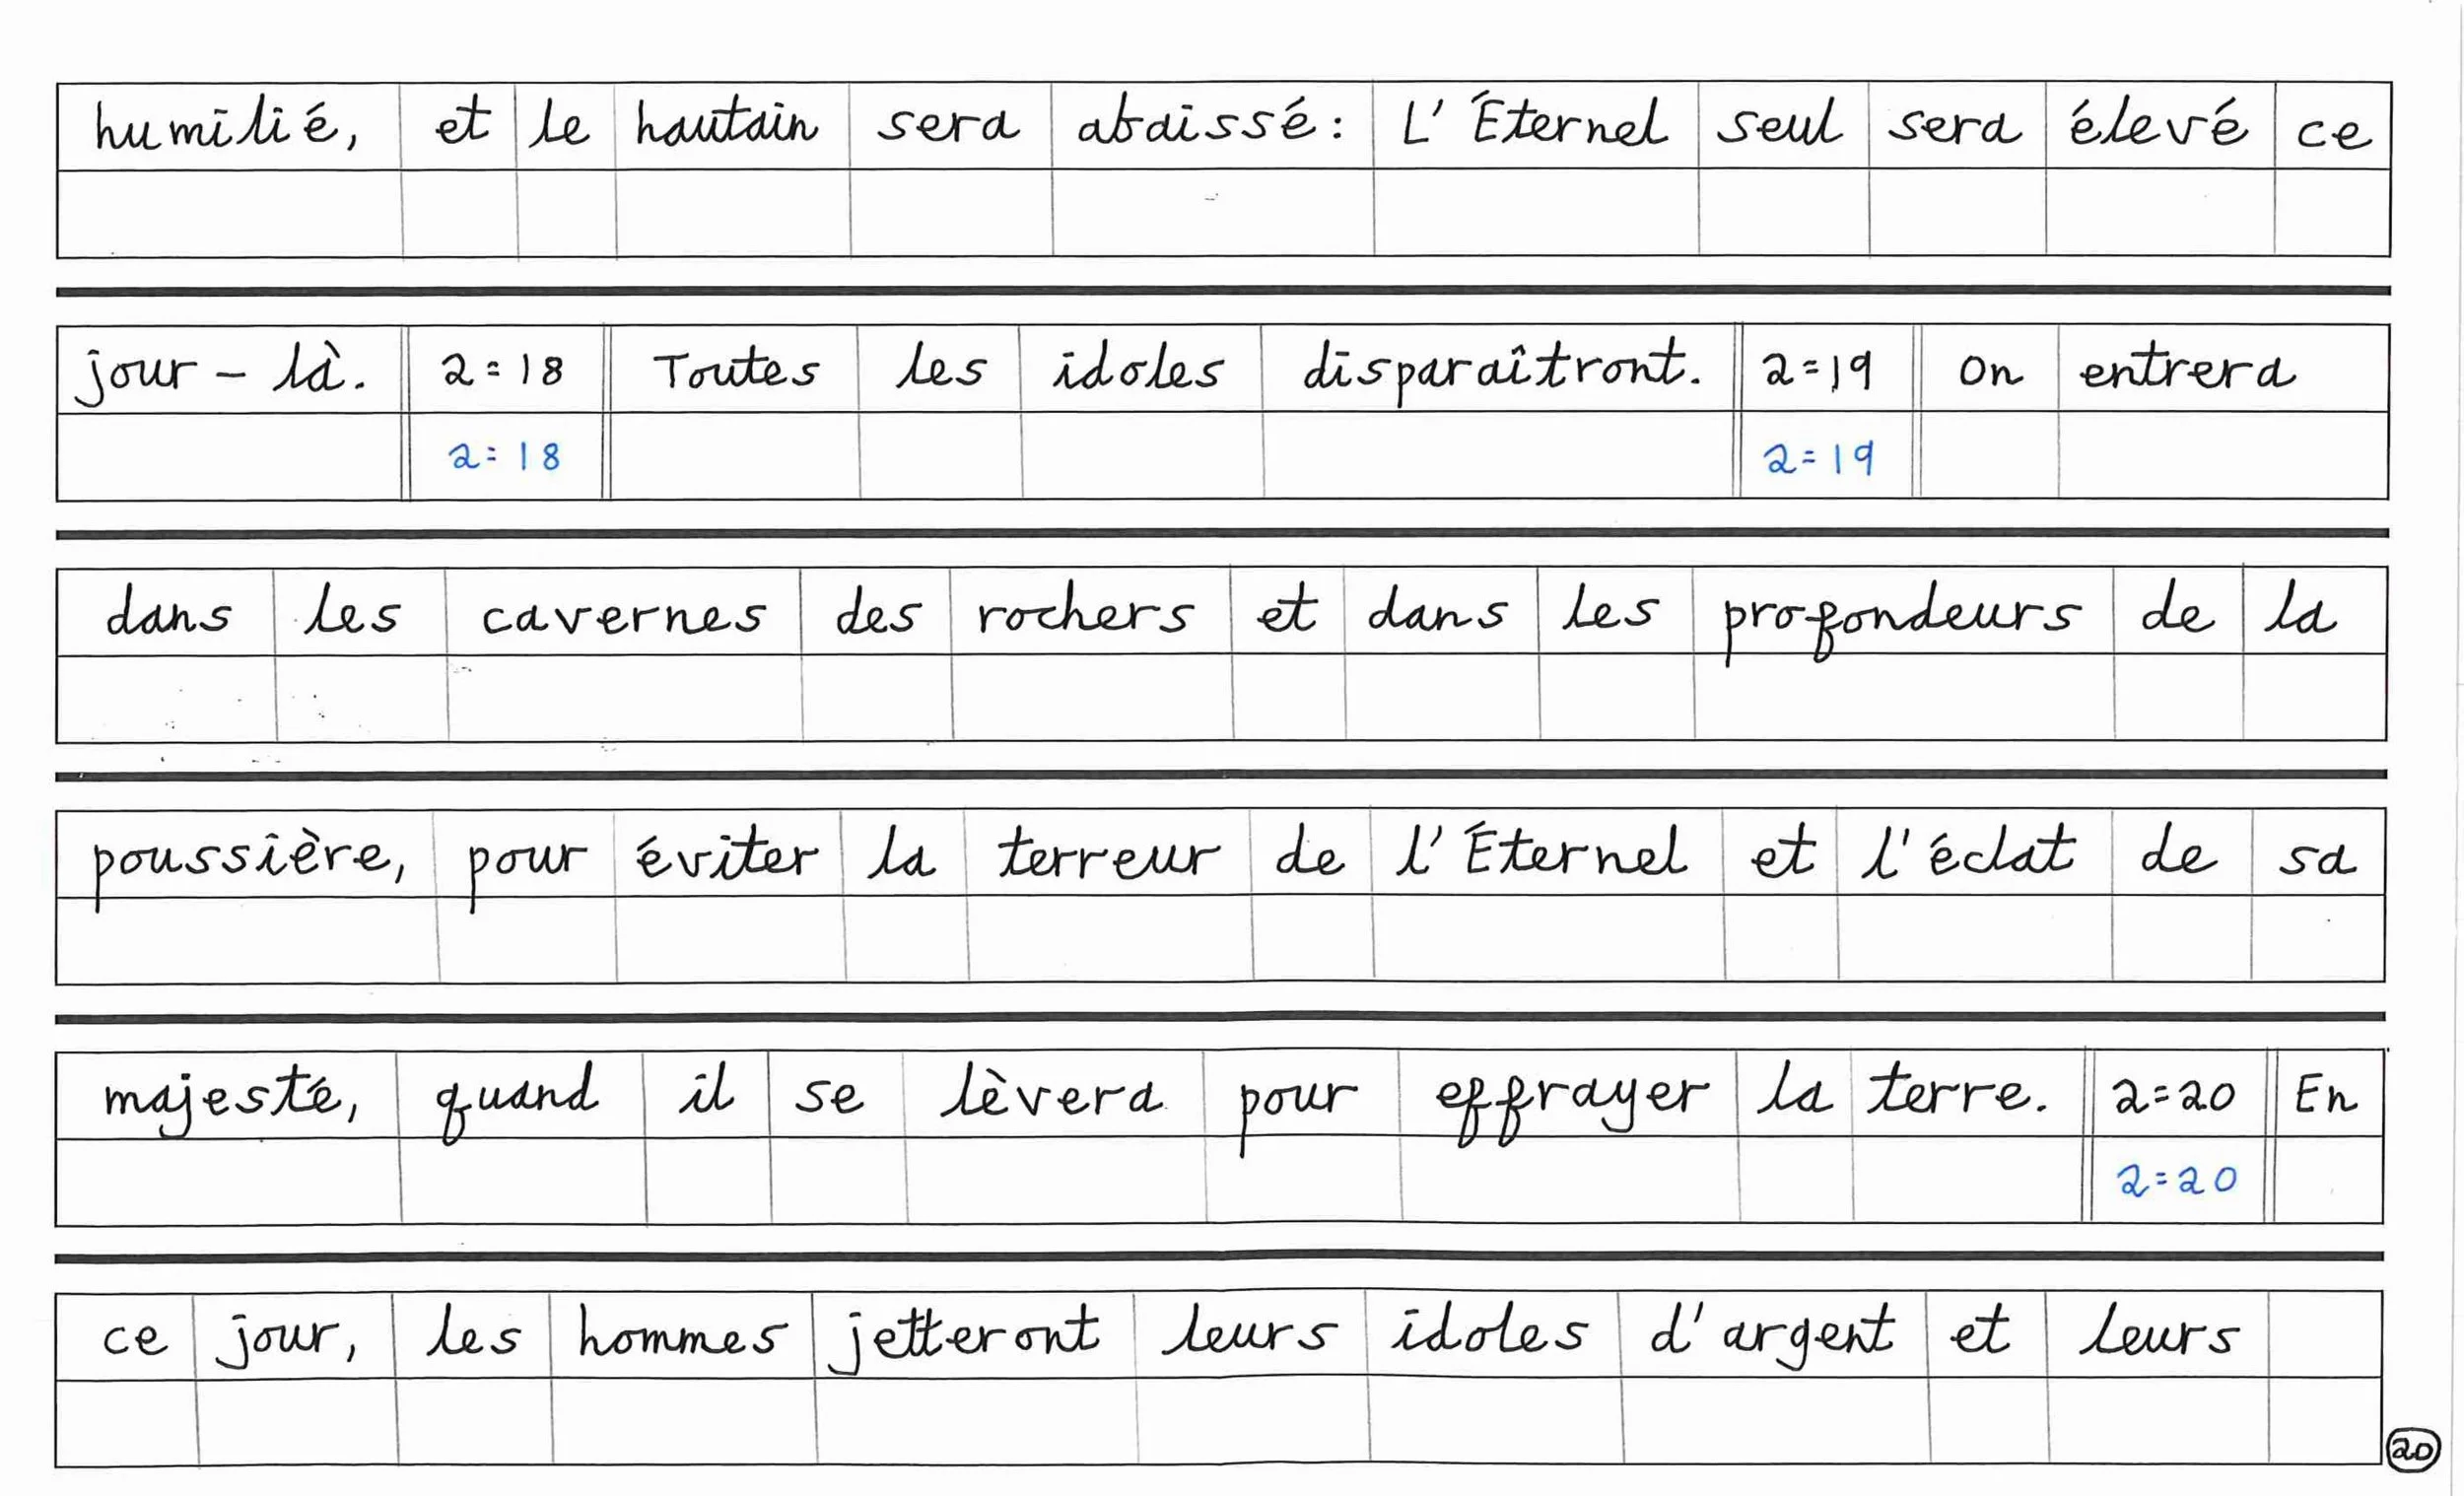 humilié, et le hautain sera abaissé: L'Éternel seul sera élevé ce
jour-là. 2=18 Toutes les idoles disparaîtront. 2=19 on entrera
2=18 2=19
dans les cavernes des rochers et dans les profondeurs de la
poussière, pour éviter la terreur de l'Éternel et l'éclat de sa
majesté, quand il se lèvera pour effrayer la terre. 2=20 En
2=20
ce jour, les hommes jetteront leurs idoles d'argent et leurs
20